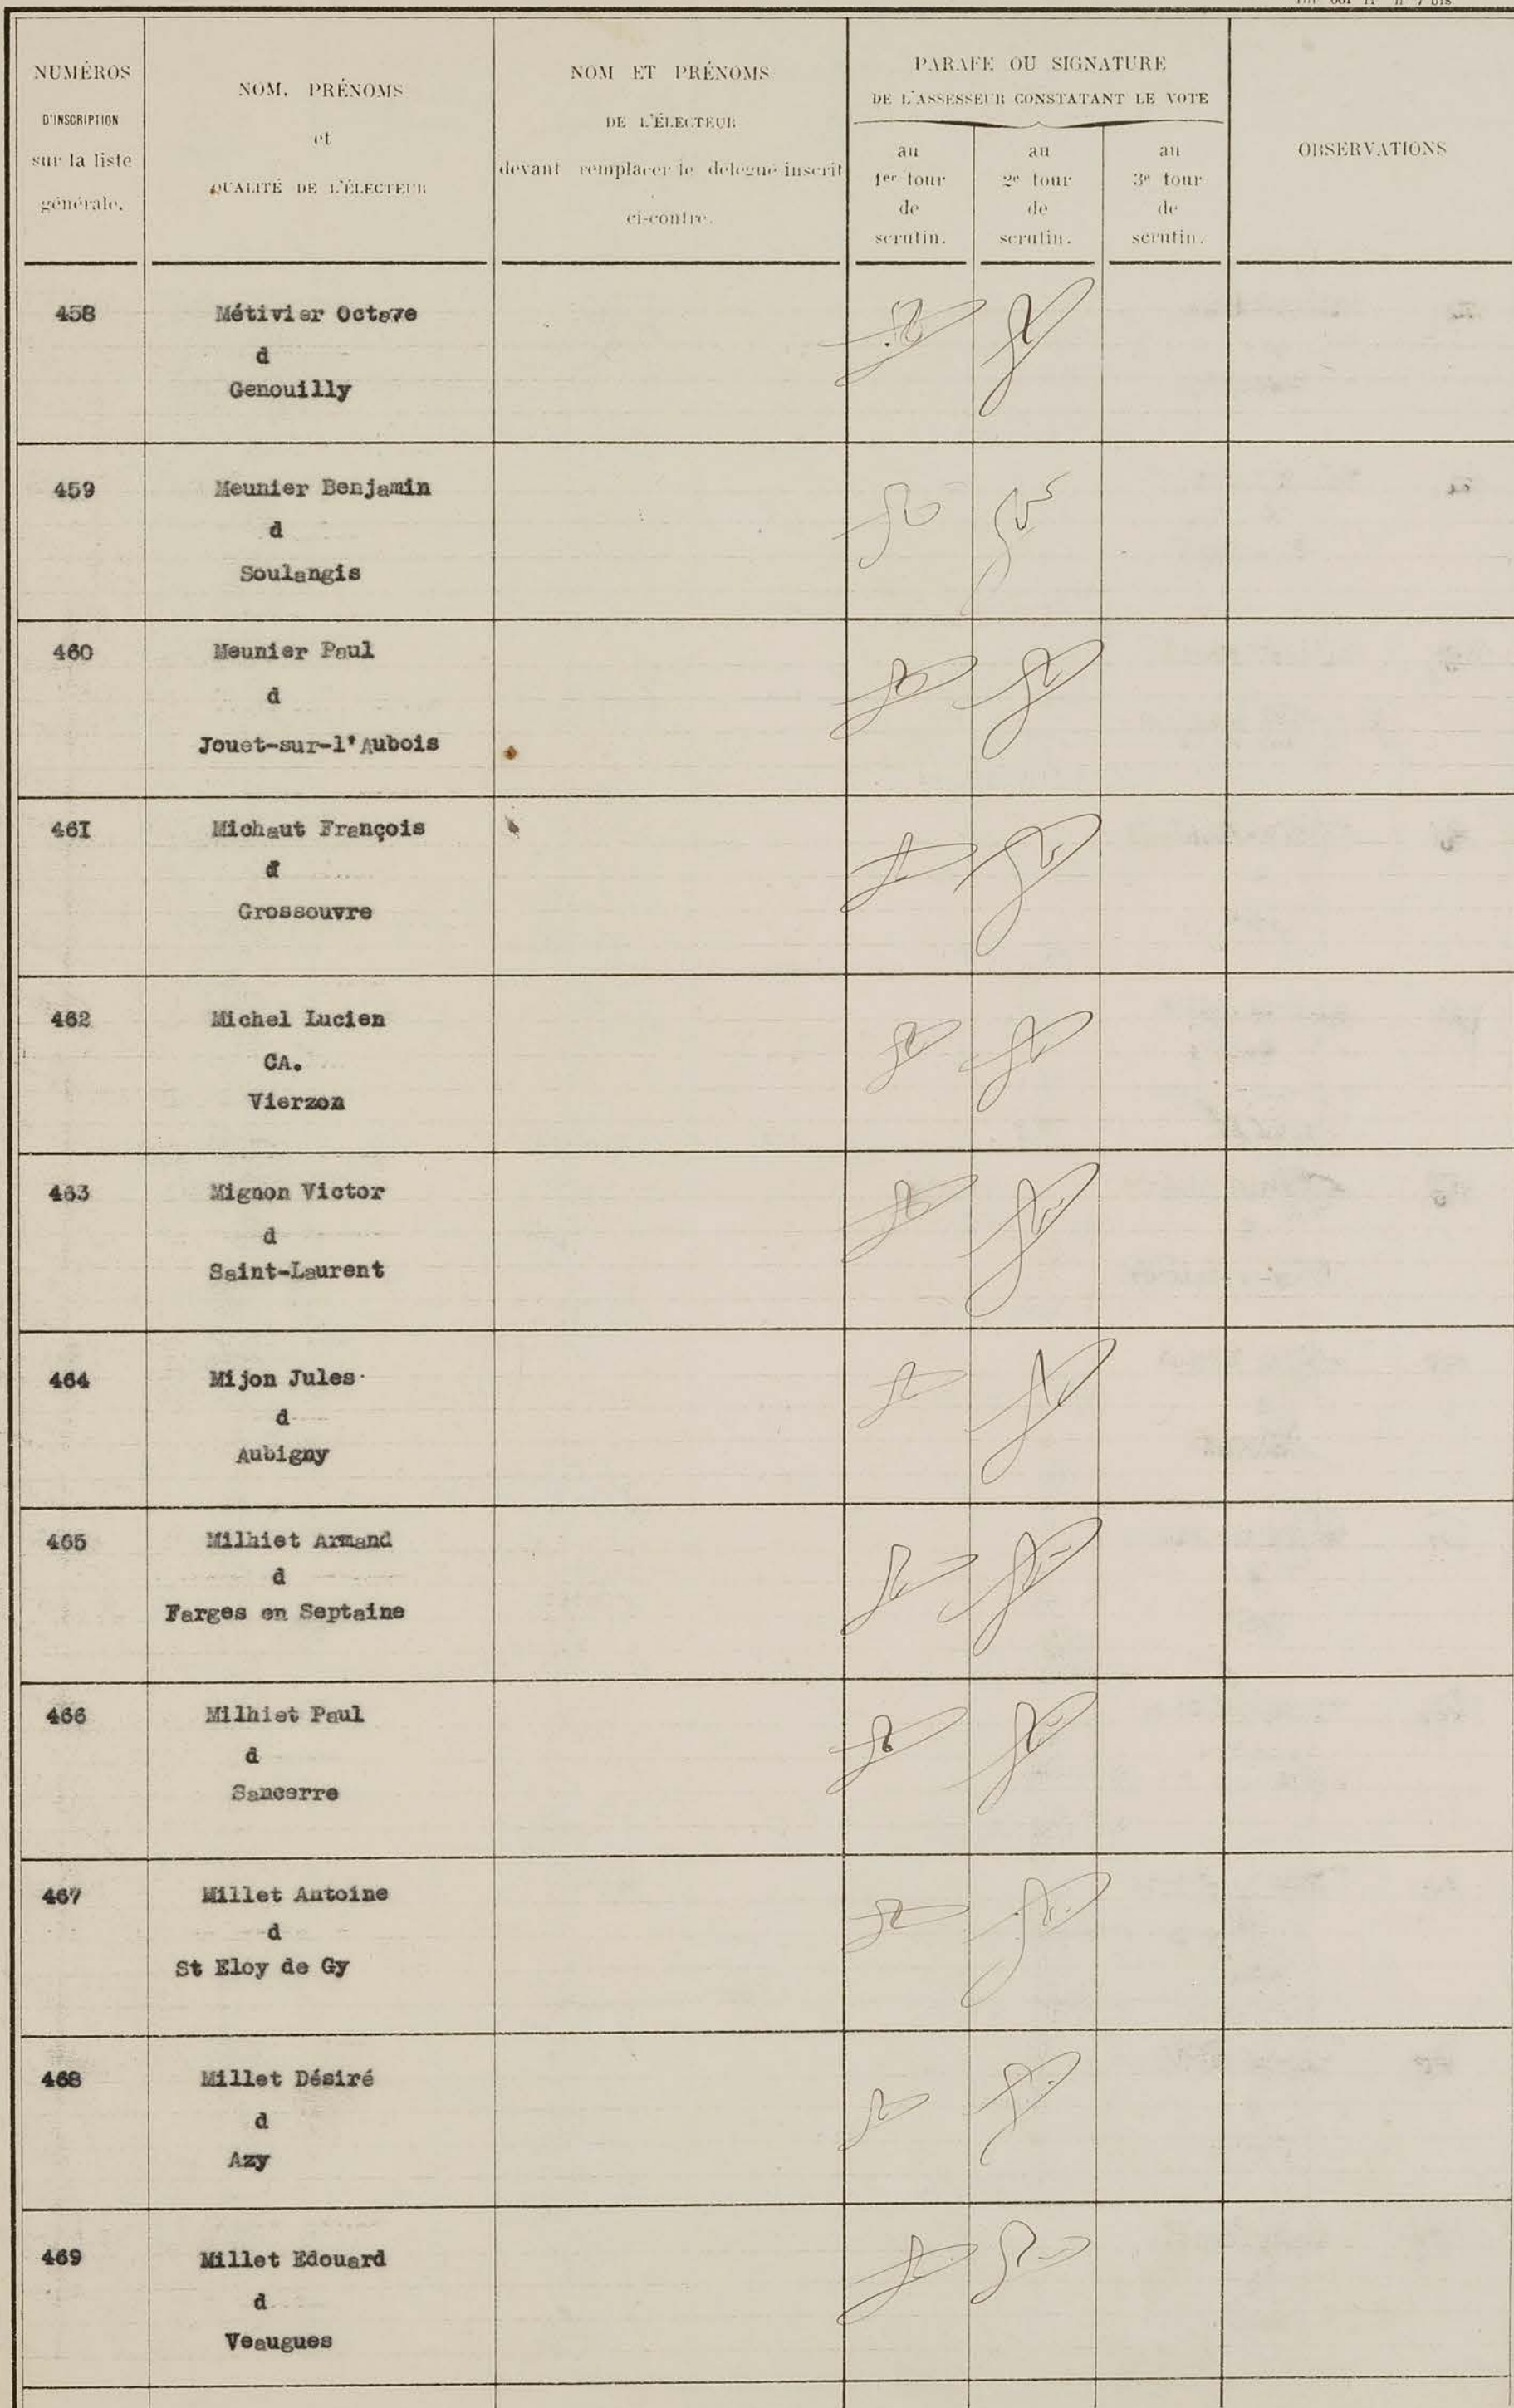 NUMÉROS
D'INSCRIPTION
sur la liste
générale.
NOM, PRÉNOMS
et
QUALITÉ DE L'ÉLECTEUR
NOM ET PRÉNOMS
DE L'ÉLECTEUR
devant remplacer le délégué inscrit
ci-contre.
PARAFE OU SIGNATURE
DE L'ASSESSEUR CONSTATANT LE VOTE
au
1er tour
de
scrutin.
au
2e tour
de
scrutin.
au
3e tour
de
scrutin.
OBSERVATIONS
458 Métivier Octave
d
Genouilly
459 Meunier Benjamin
d
Soulangis
460 Meunier Paul
d
Jouet-sur-l'Aubois
46I Michaut François
d
Grossouvre
462 Michel Lucien
CA.
Vierzon
463 Mignon Victor
d
Saint-Laurent
464 Mijon Jules
d
Aubigny
465 Milhiet Armand
d
Farges en Septaine
466 Milhiet Paul
d
Sancerre
467 Millet Antoine
d
St Eloy de Gy
468 Millet Désiré
d
Azy
469 Millet Edouard
d
Veaugues